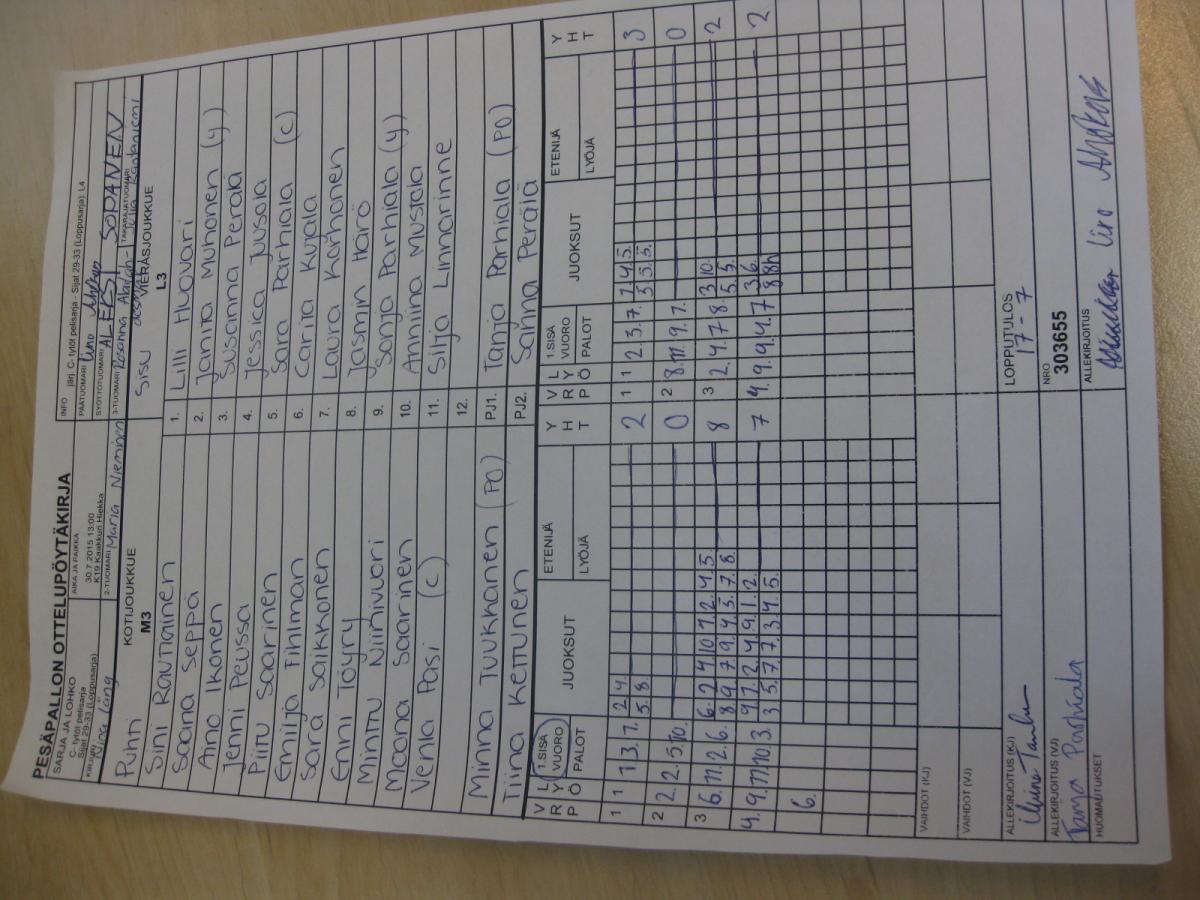 PESÄPALLON OTTELUPÖYTÄKIRJA
SARJA JA LOHKO
C- tytöt pelisarja
Sijat 29-33 (Loppusarja)
AIKA JA PAIKKA
30.7.2015 13:00
K19 Kaakkuri Hiekka
INFO
järj. C- tytöt pelisarja - Sijat 29-33 (Loppusarja): L4
KIRJURI
PÄÄTUOMARI
SYÖTTÖTUOMARI ALEKSI SORANEN
2-TUOMARI Maria Nieminen
3-TUOMARI
TAKARAJATUOMARI
KOTIJOUKKUE
M3
VIERASJOUKKUE
L3
Puhti
Sisu
Sini Rautiainen 1. Lilli Huovari
Saana Seppä 2. Janna Muhonen (y)
Aino Ikonen 3. Susanna Perälä
Jenni Peussa 4. Jessica Juusola
Piitu Saarinen 5. Sara Parhiala (c)
Emilia Tihlman 6. Carita Kujala
Sara Saikkonen 7. Laura Korhonen
Enni Töyry 8. Jasmin Härö
Minttu Niinivuori 9. Sonja Parhiala (y)
Moona Saarinen 10. Anniina Mustola
Venla Pasi (c) 11. Silja Linnarinne
12.
Minna Tuukkanen (PO) PJ1. Tanja Parhiala (PO)
Tiina Kettunen PJ2. Sanna Perälä
VRP LYÖ 1.SISÄVUORO PALOT JUOKSUT ETENIJÄ LYÖJÄ YHT
VRP LYÖ 1.SISÄVUORO PALOT JUOKSUT ETENIJÄ LYÖJÄ YHT
1 1 1. 3. 7. 2. 4. 2 1 1 2. 3. 7. 1. 4. 5. 3
5. 8. 5. 5. 5.
2 2. 2. 5. 10. 0 2 8. 11. 9. 1. 0
3 6. 11. 2. 6. 6. 2. 4. 10. 1. 2. 4. 5. 8 3 2. 4. 7. 8. 3. 10. 2
8. 9. 7. 9. 4. 5. 7. 8. 5. 5.
4. 9. 11. 10. 3. 9. 1. 2. 4. 9. 1. 2. 7 4. 9. 9. 4. 7 3. 6. 2
3. 5. 7. 7. 3. 4. 5.
6.
VAIHDOT (KJ)
VAIHDOT (VJ)
ALLEKIRJOITUS (KJ)
LOPPUTULOS
17 - 7
ALLEKIRJOITUS (VJ)
Tanja Parhiala
NRO
303655
HUOMAUTUKSET
ALLEKIRJOITUS